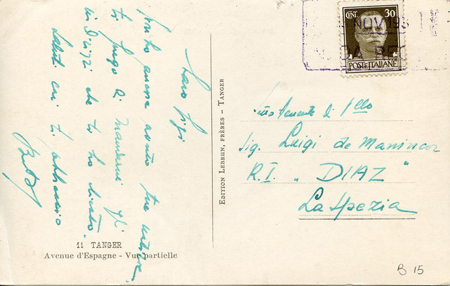 Caro Gigi
non ho ancora avuto tue notizie.
ti prego di mandarmi gli
indirizzi che ti ho chiesto.
Saluti cari ti abbraccio
11 TANGER
Avenue d'Espagne - Vue partielle
EDITION LEBRUN, FRÈRES - TANGER
CENT. 30
POSTE ITALIANE
NOV 193
Sig. Luigi de Manincor
R.I. "DIAZ"
La Spezia
B 15